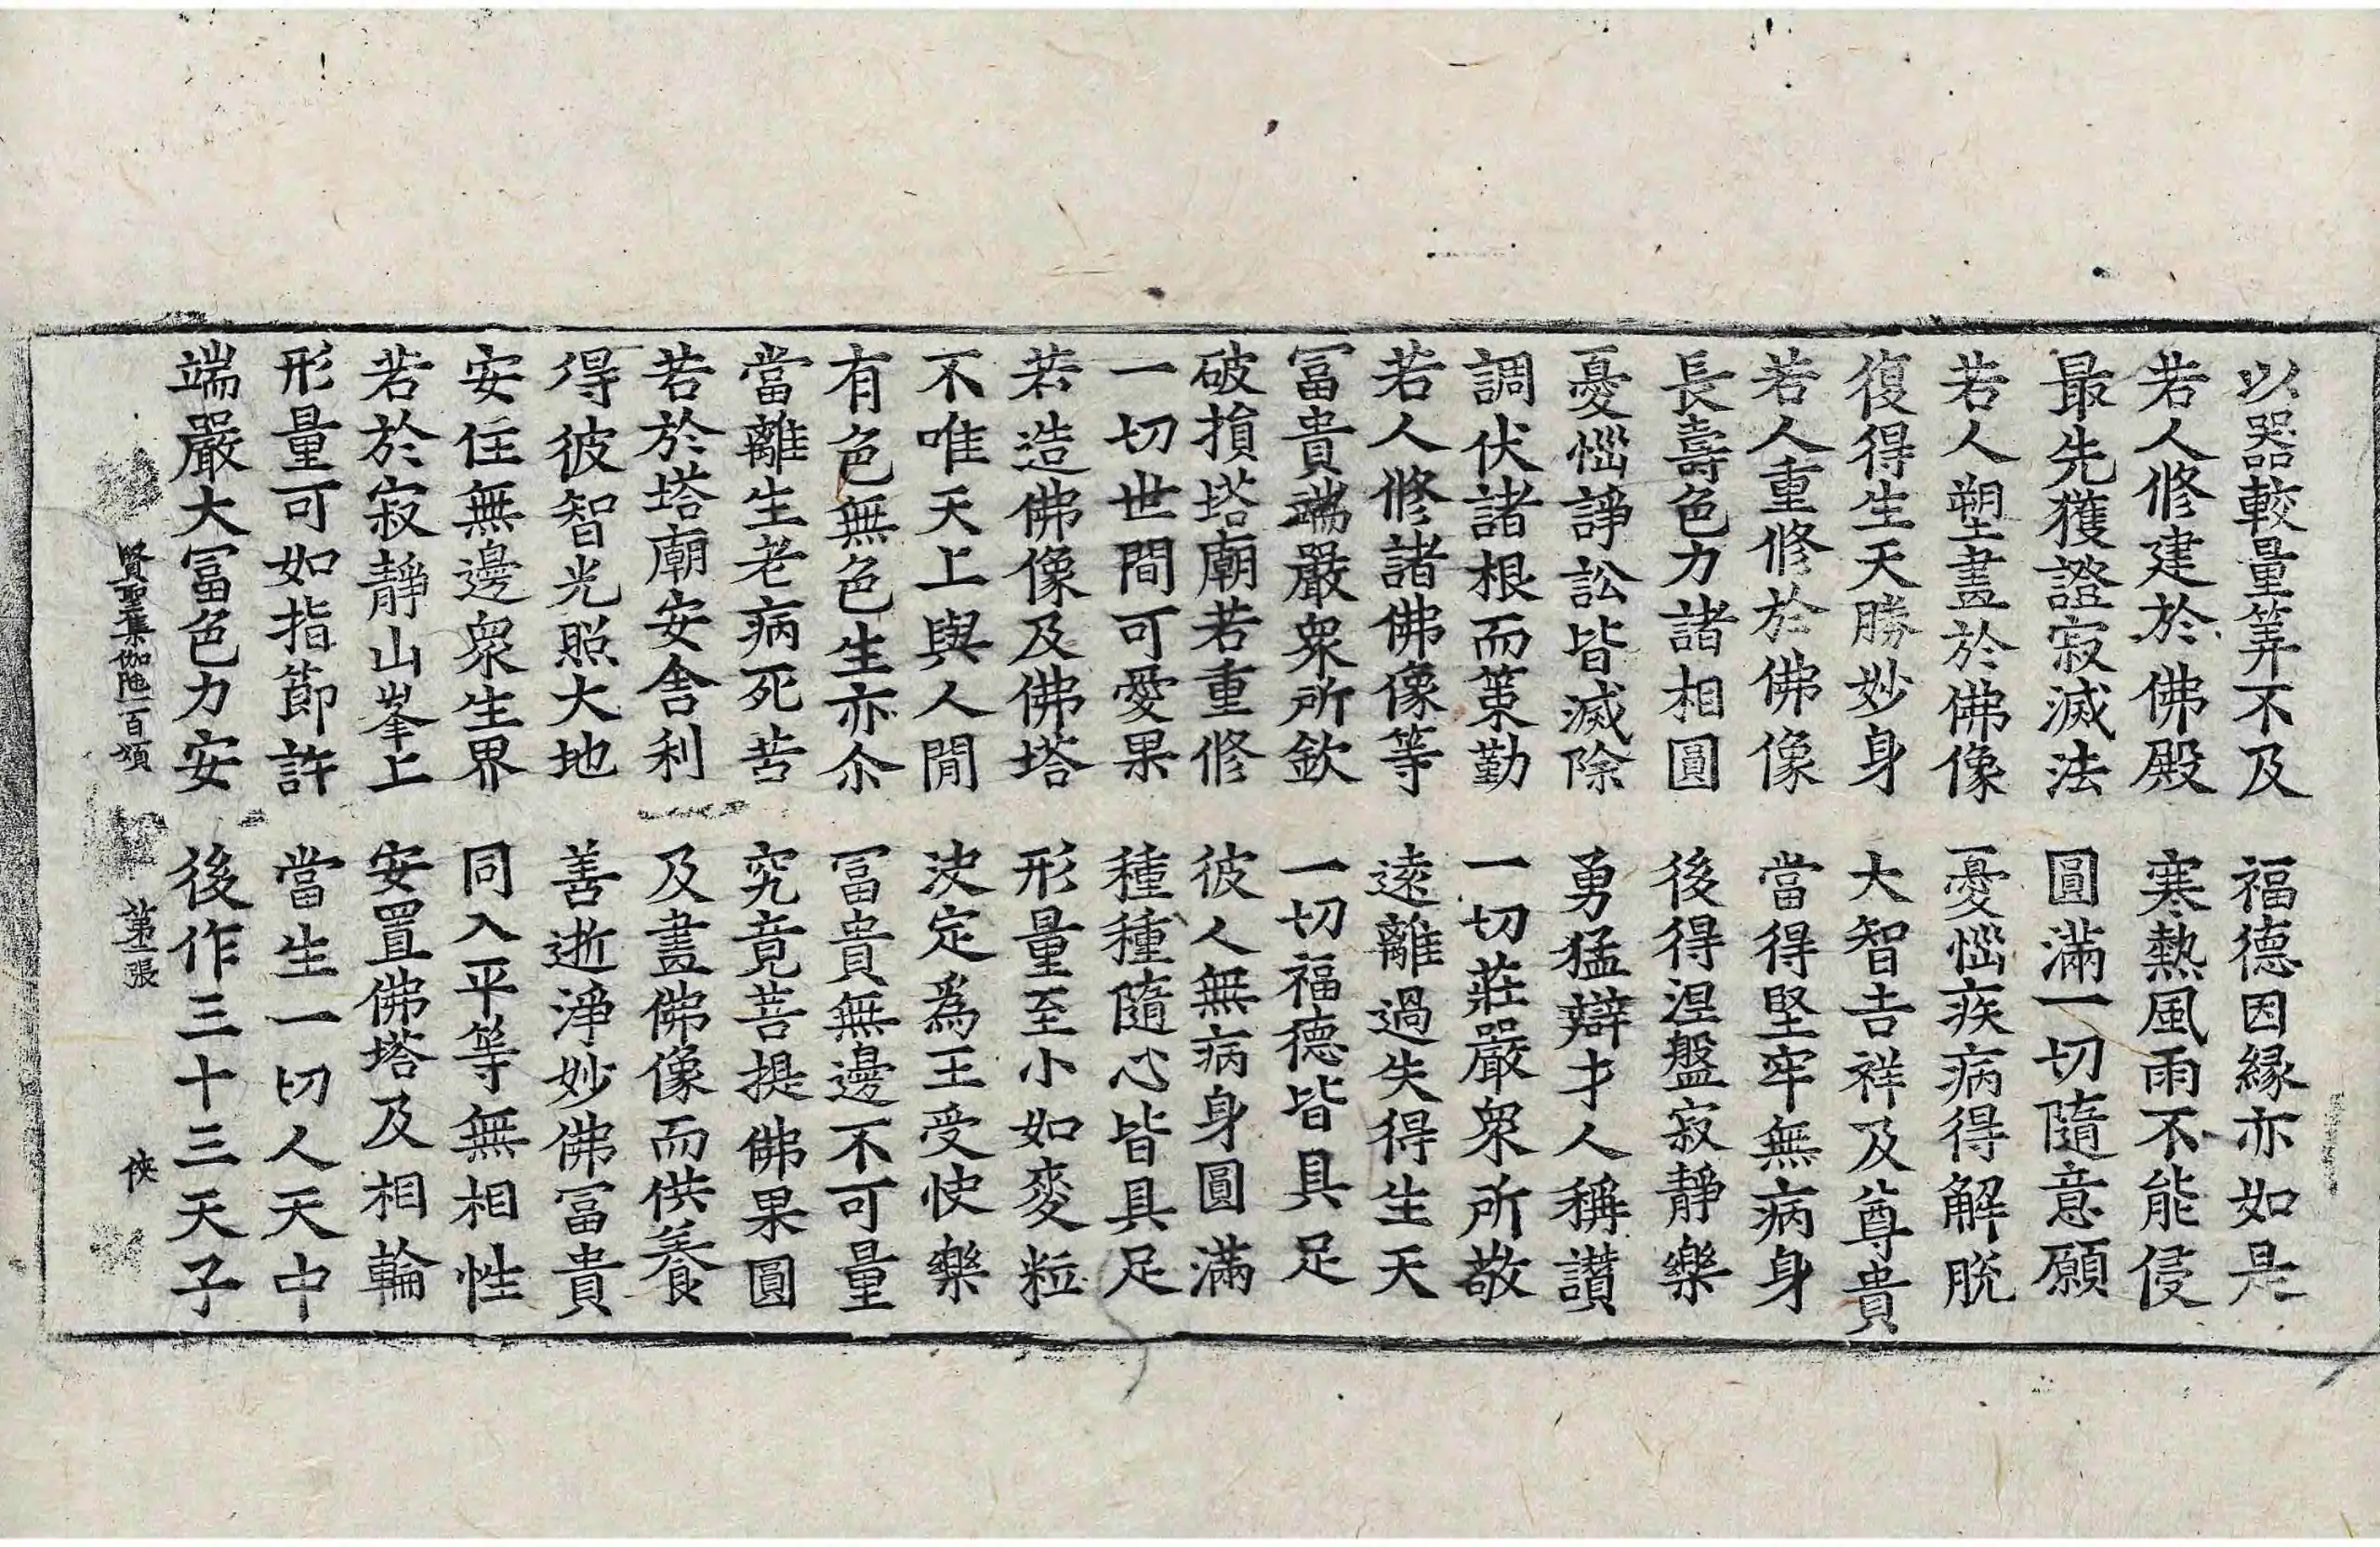 以器較量筭不及　福德因縁亦如是
若人修建於佛殿　寒熱風雨不能侵
最先獲證寂滅法　圓滿一切隨意願
若人塑畫於佛像　憂惱疾病得解脫
復得生天勝妙身　大智吉祥及尊貴
若人重修於佛像　當得堅牢無病身
長壽色力諸相圓　後得涅盤寂靜樂
憂惱諍訟皆滅除　勇猛辯才人稱讃
調伏諸根而策勤　一切莊嚴衆所敬
若人修諸佛像等　遠離過失得生天
冨貴端嚴衆所欽　一切福德皆具足
破損塔廟若重修　彼人無病身圓滿
一切世間可愛果　種種隨心皆具足
若造佛像及佛塔　形量至小如麥粒
不唯天上與人間　決定爲王受快樂
有色無色生亦尒　冨貴無邊不可量
當離生老病死苦　究竟菩提佛果圓
若於塔廟安舍利　及畫佛像而供養
得彼智光照大地　善逝淨妙佛冨貴
安住無邊衆生界　同入平等無相性
若於寂靜山峯上　安置佛塔及相輪
形量可如指節許　當生一切人天中
端嚴大冨色力安　後作三十三天子
賢聖集伽陁一百頌　第二張　俠